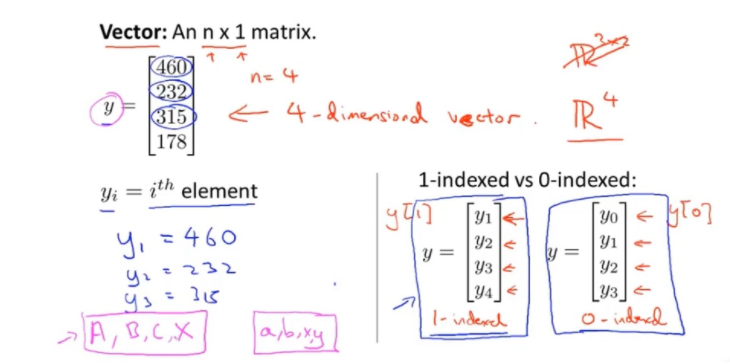 Vector: An n x 1 matrix.
ℝ³ˣ²
y = [460 232 315 178]
n = 4
← 4-dimensional vector.
ℝ⁴
yᵢ = iᵗʰ element
y₁ = 460
y₂ = 232
y₃ = 315
→ A, B, C, X
a, b, x, y
1-indexed vs 0-indexed:
y[1]
y = [y₁ y₂ y₃ y₄]
1-indexed
y[0]
y = [y₀ y₁ y₂ y₃]
0-indexed